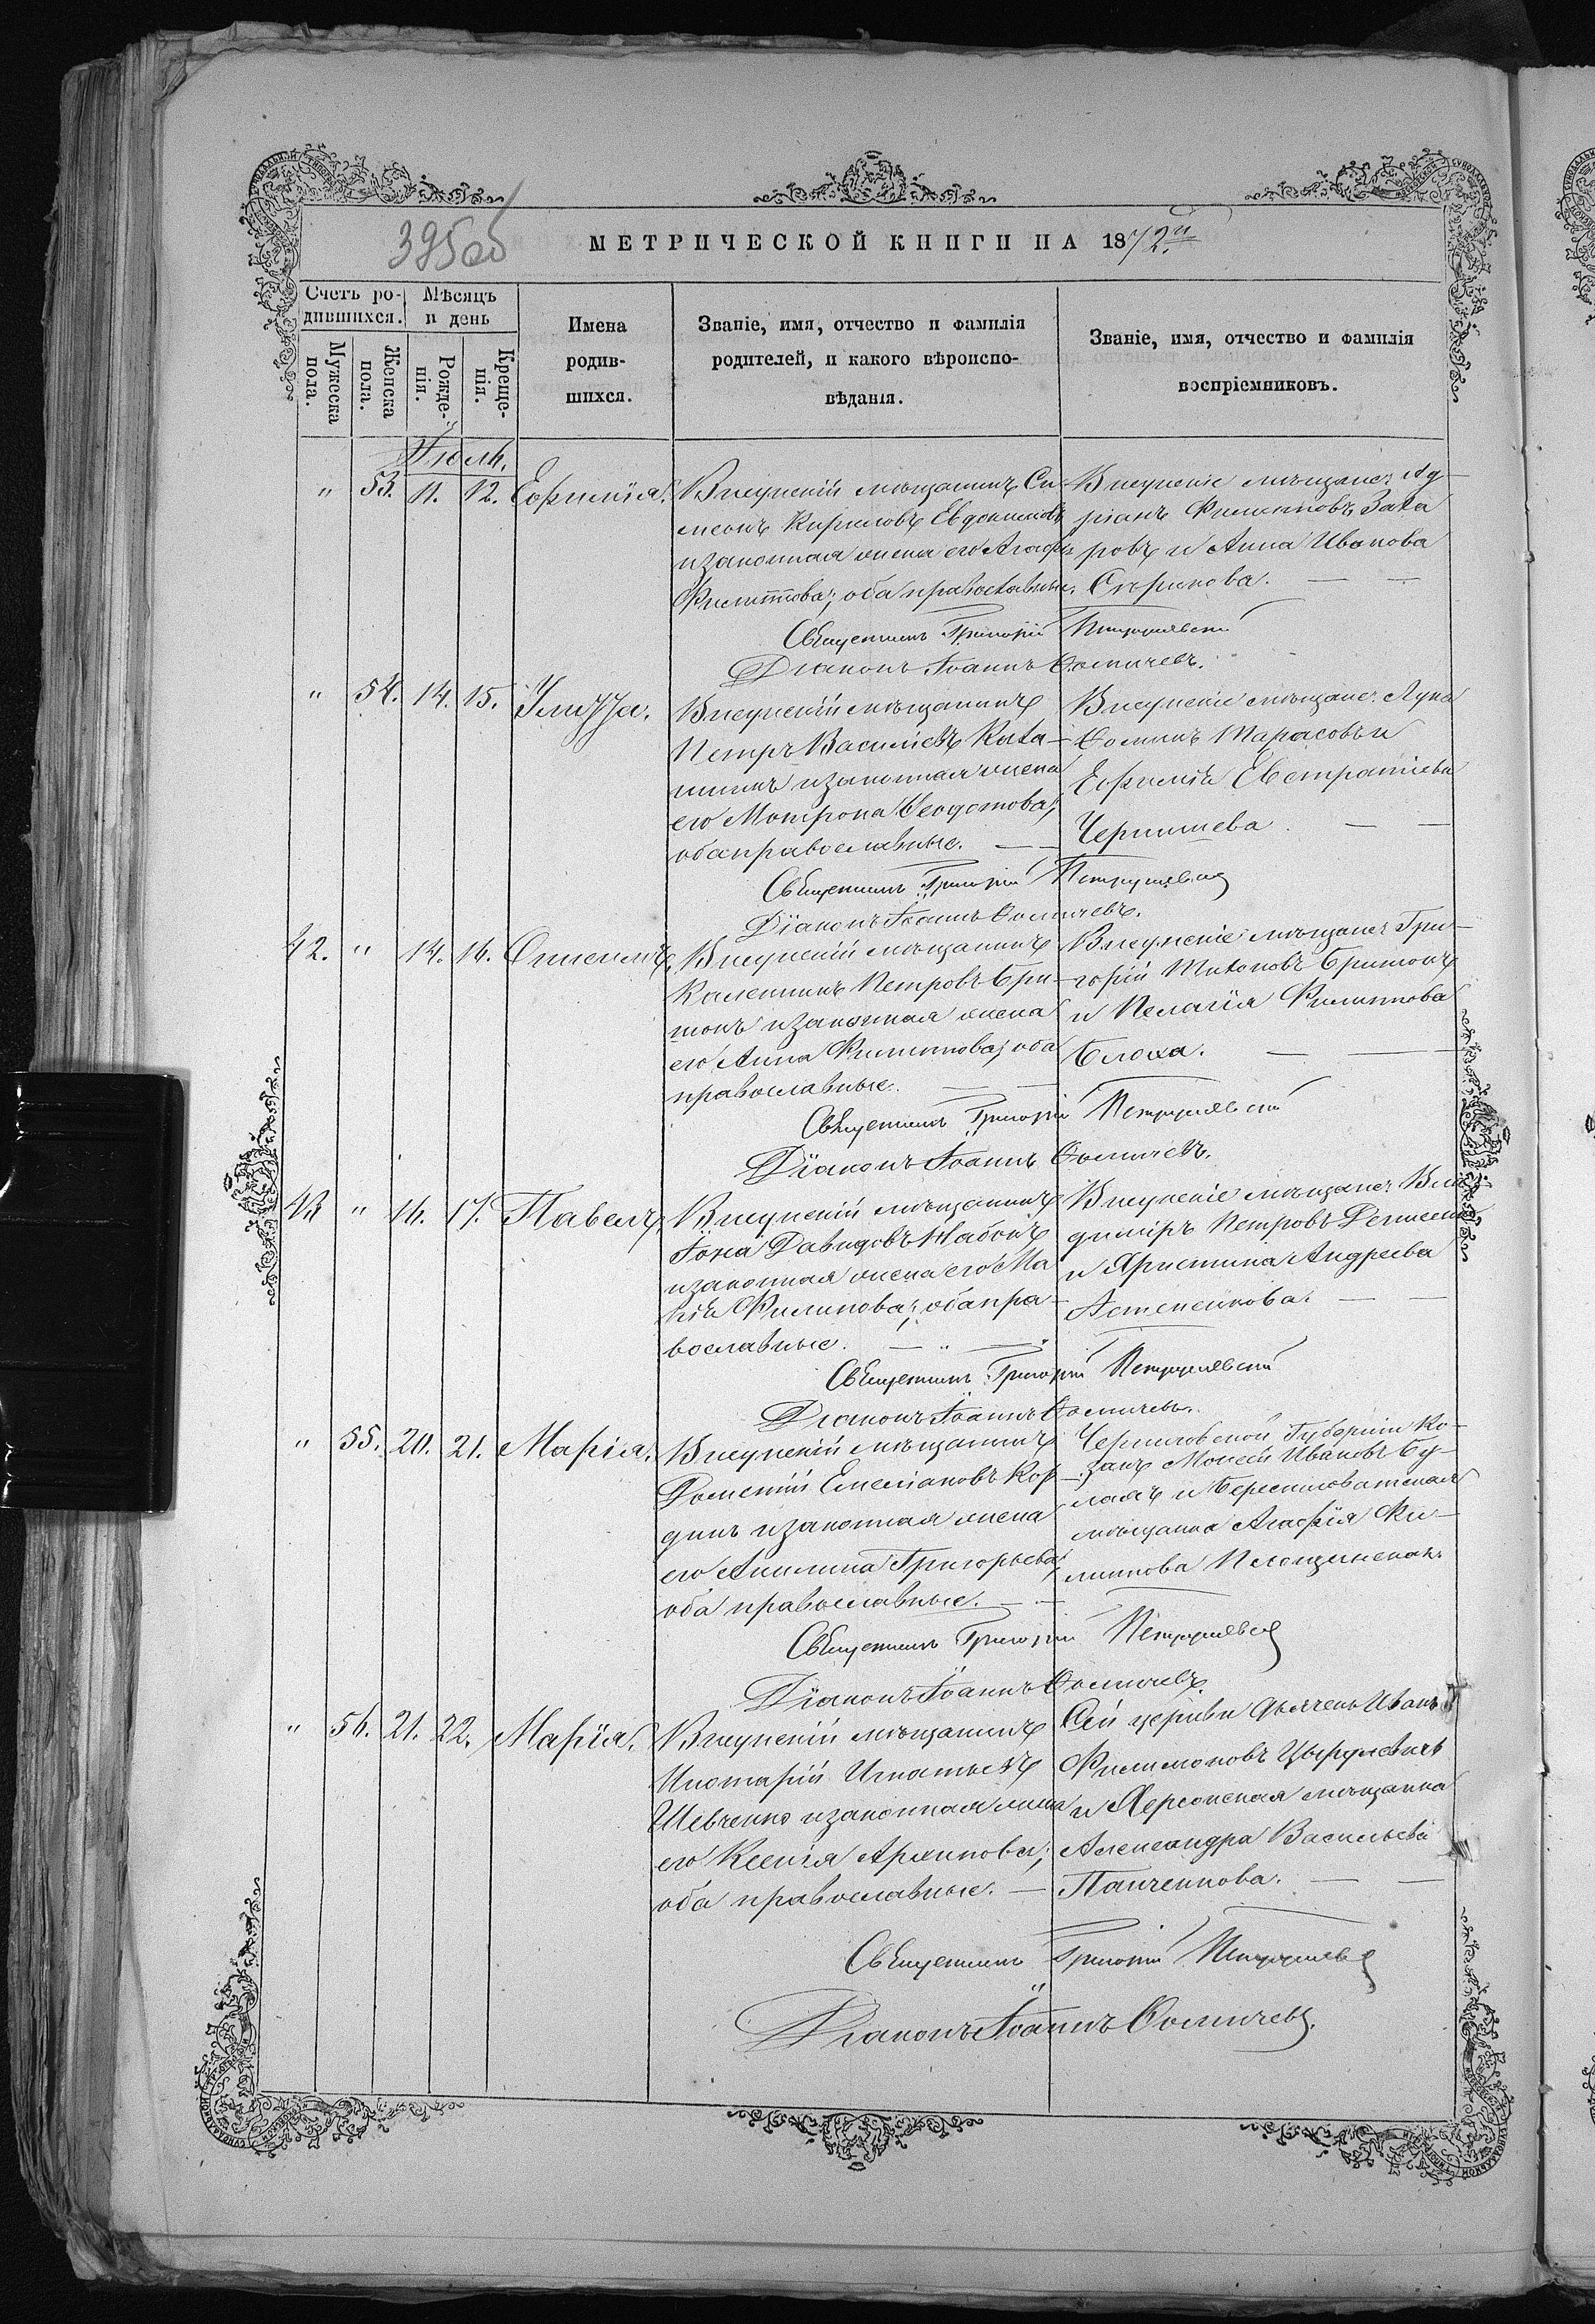 395об
МЕТРИЧЕСКОЙ КНИГИ НА 1872й
Счетъ ро-
дившихся.
Мѣсяцъ
и день
Мужеска
пола.
Женска
пола.
Рожде-
нія.
Креще-
нія.
Имена
родив-
шихся.
Званіе, имя, отчество и фамилія
родителей, и какого вѣроиспо-
вѣданія.
Званіе, имя, отчество и фамилія
воспріемниковъ.
Іюль.
" 53. 11. 12. Евфимія.
Висунскій мѣщанинъ Си-
меонъ Кириловъ Евдокимовъ
и законная жена его Агафія
Филиппова; оба православные.
Висунскіе мѣщане: Ад-
ріанъ Филипповъ Заха
ровъ и Анна Иванова
Скрипкова.
Священникъ Григорій
Діаконъ Іоаннъ Ѳомичевъ.
" 54. 14. 15. Улитта.
Висунскій мѣщанинъ
Петръ Васильевъ
и законная жена
его Мотрона Ѳеодотова;
оба православные.
Висунскіе мѣщане: Лука
Ѳоминъ Тарасовъ и
Евфимія Евстратіева
Чернышева.
Священникъ Григорій
Діаконъ Іоаннъ Ѳомичевъ.
42. " 14. 16.
Висунскій мѣщанинъ
Калинникъ Петровъ Бри-
тонъ и законная жена
его Анна Филиппова; оба
православные.
Висунскіе мѣщане: Гри-
горій Тихоновъ Бритонъ
и Пелагія Филиппова
Блоха.
Священникъ Григорій
Діаконъ Іоаннъ Ѳомичевъ.
43 " 16. 17. Павелъ.
Висунскій мѣщанинъ
Іона Давидовъ
и законная жена его Ма
Филипова; оба пра-
вославные.
Висунскіе мѣщане: Вла-
диміръ Петровъ
и Христина Андреева
Священникъ Григорій
Діаконъ Іоаннъ Ѳомичевъ.
" 55. 20. 21. Марія.
Висунскій мѣщанинъ
Дометій Емеліановъ Кор-
динъ и законная жена
его Акилина Григорьева;
оба православные.
Черниговской Губерніи Ко-
закъ Моисей Ивановъ Бу-
и Бериславская
мѣщанка Агафія Фи-
липпова
Священникъ Григорій
Діаконъ Іоаннъ Ѳомичевъ.
" 56. 21. 22. Марія.
Висунскій мѣщанинъ
Игнатьевъ
Шевченко и законная жена
его Ксенія Архипова;
оба православные.
Сей церкви дьячекъ Иванъ
Филимоновъ Цырулевичъ
и Херсонская мѣщанка
Александра Васильева
Панченкова.
Священникъ Григорій
Діаконъ Іоаннъ Ѳомичевъ.